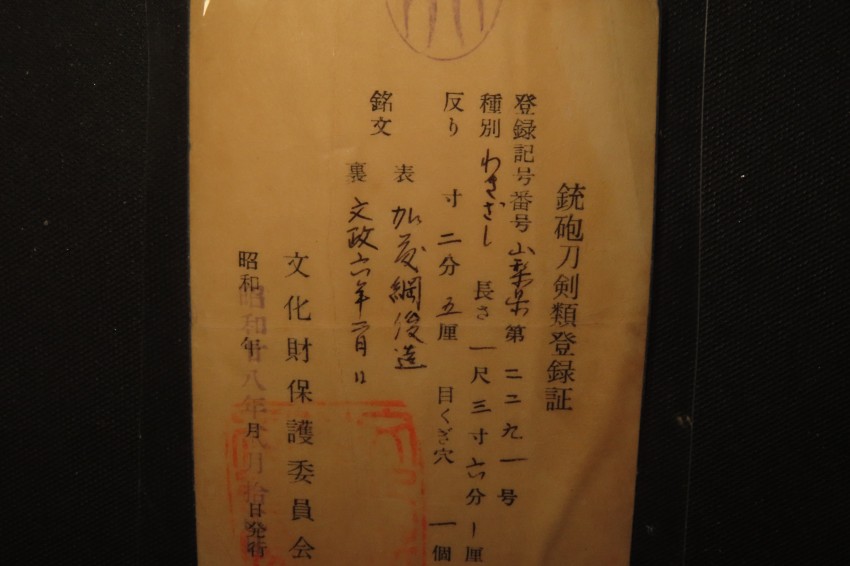 銃砲刀剣類登録証
登録記号番号 山梨県 第 二二九一号
種別 わきざし 長さ 一尺三寸六分一厘
反り 寸二分五厘 目くぎ穴 一個
銘文 表 加藤綱俊造
裏 文政六年二月日
文化財保護委員会
昭和 年 月 日発行
昭和廿八年 月拾